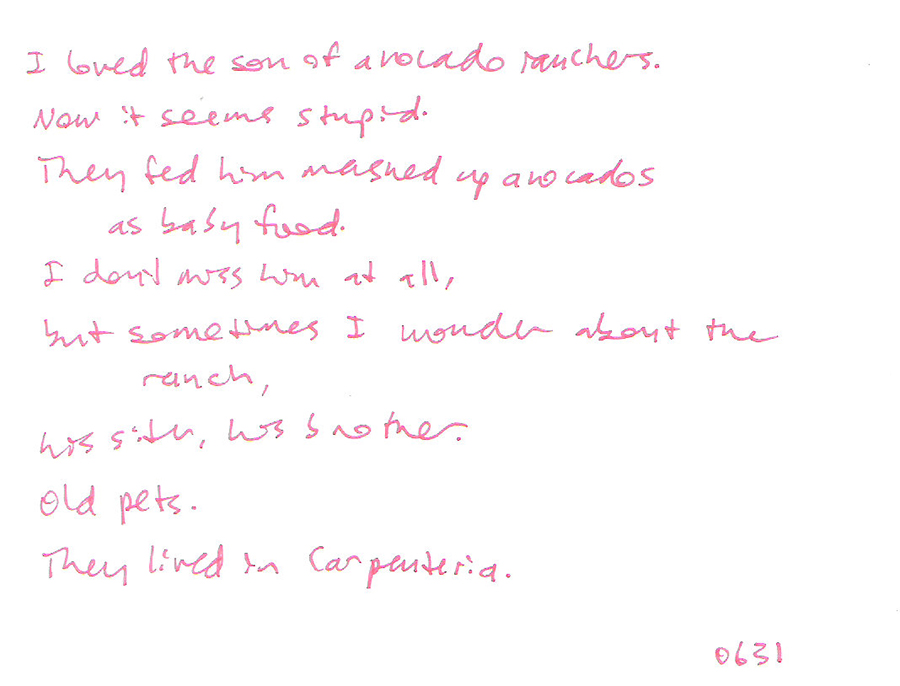 I loved the son of avocado ranchers.
Now it seems stupid.
They fed him mashed up avocados
as baby food.
I don't miss him at all,
but sometimes I wonder about the
ranch,
his sister, his brother.
Old pets.
They lived in Carpenteria.
0631